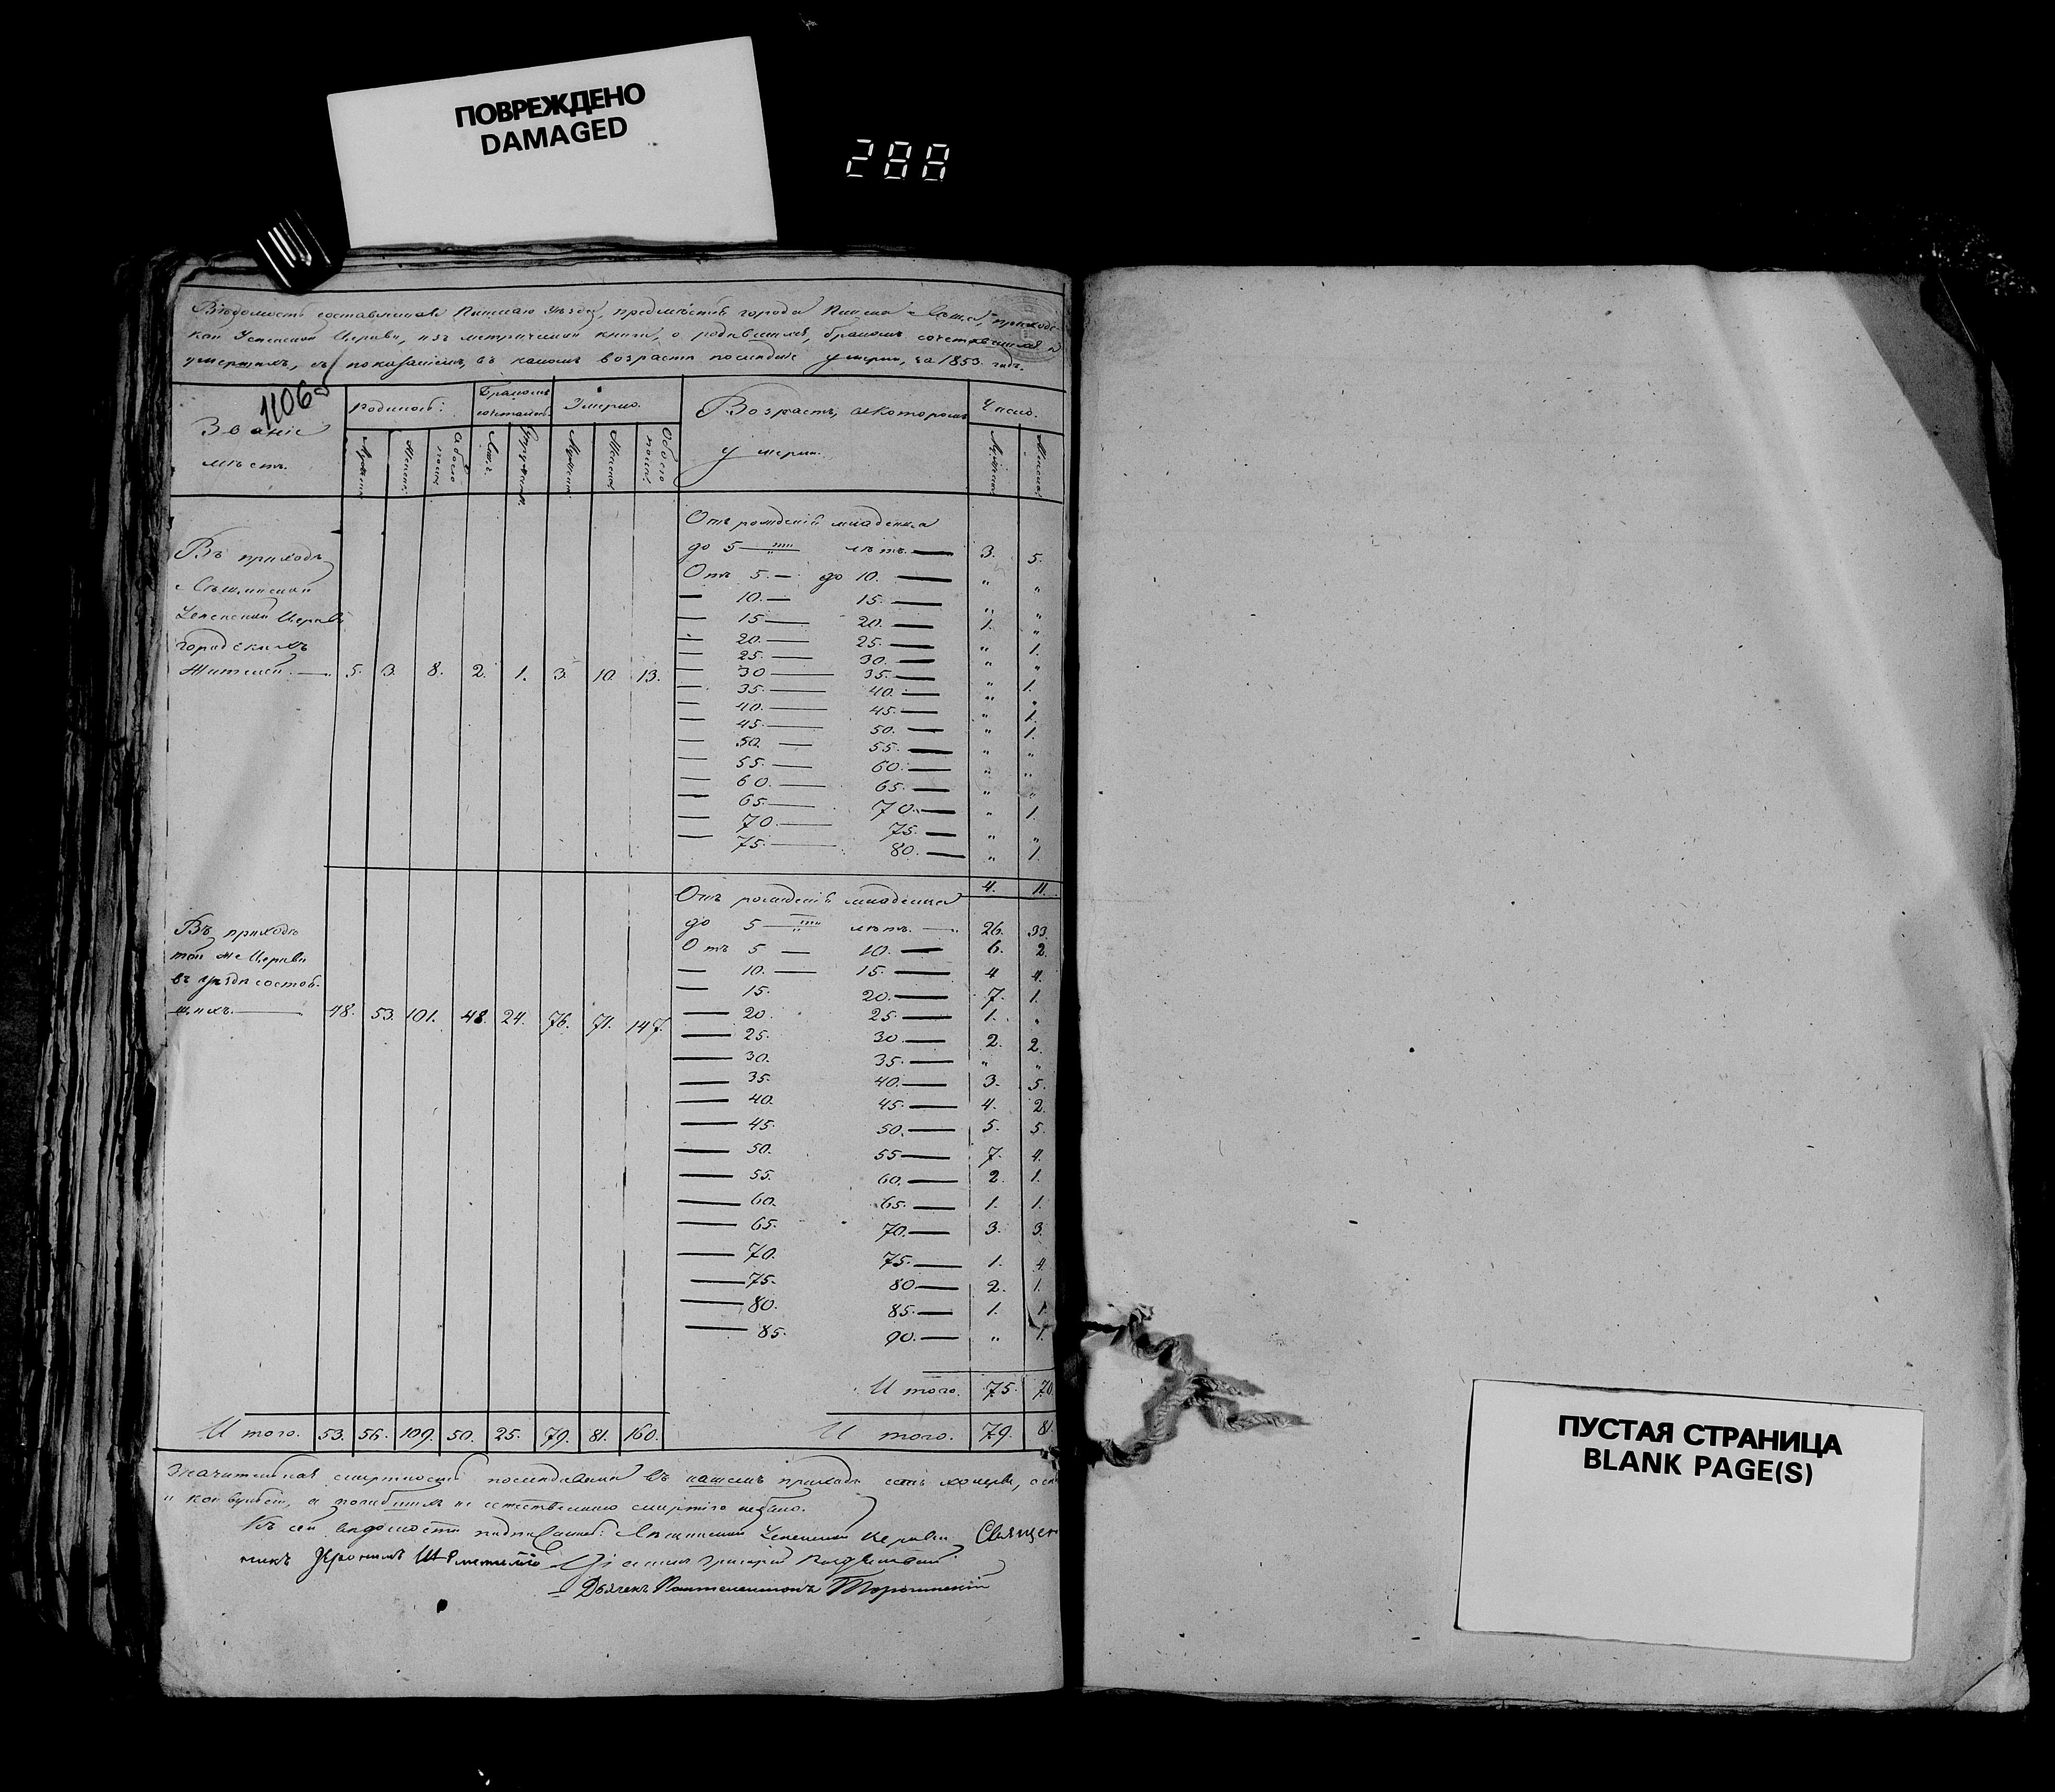 ПОВРЕЖДЕНО
DAMAGED
288
Вѣдомость составленная Пинскаго Уѣзда, предмѣстья города Пинска приход-
ской Успенской Церкви, изъ метрической книги, о родившихся, бракомъ сочетавшихся и
умершихъ, съ показаніемъ, въ какомъ возрастѣ послѣдніе умерли, за 1853 годъ.
1106
Званіе мѣстъ.
Родилось:
Бракомъ сочеталось
Умерло.
Возрастъ, въ которомъ умерли.
Число.
Мужеска Женска Обоего пола Лицъ Супружествъ Мужеска Женска Обоего пола Мужеска Женска
Въ приходѣ
Лещинской
Успенской Церкви
городскихъ
Жителей. — 5. 3. 8. 2. 1. 3. 10. 13.
Отъ рожденія младенца
до 5 — лѣтъ. — 3. 5.
Отъ 5. — до 10. — " "
— 10. — 15. — " "
— 15 — 20. — 1. "
— 20. — 25. — " 1.
— 25. — 30. — " "
— 30 — 35. — " 1.
— 35. — 40. — " "
— 40. — 45. — " 1.
— 45. — 50. — " 1.
— 50. — 55. — " "
— 55. — 60. — " "
— 60. — 65. — " "
— 65. — 70. — " 1.
— 70. — 75. — " "
— 75. — 80. — " 1.
4. 11.
Въ приходѣ
той же Церкви
въ уѣздѣ состоя-
щихъ. — 48. 53. 101. 48. 24. 76. 71. 147.
Отъ рожденія младенца
до 5 — лѣтъ. — 26. 33.
Отъ 5 — 10. — 6. 2.
— 10. — 15. — 4 4.
— 15. 20. — 7. 1.
— 20. 25 — 1. "
— 25. 30. — 2. 2.
— 30. 35. — " "
— 35. 40. — 3. 5.
— 40. 45. — 4. 2.
— 45. 50. — 5. 5.
— 50. 55 — 7. 4.
— 55. 60. — 2. 1.
— 60. 65. — 1. 1.
— 65. 70. — 3. 3.
— 70. 75. — 1. 4.
— 75. 80 — 2. 1.
— 80. 85. — 1. 1.
— 85. 90. — " 1.
Итого. 75. 70
Итого. 53. 56. 109. 50. 25. 79. 81. 160. Итого. 79. 81.
Значительная смертность послѣдовала въ нашемъ приходѣ есть холера,
и конвульсіи, а погибшихъ не естественною смертію небыло.
Къ сей вѣдомости подписались: Лещинской Успенской Церкви Священ
никъ
Дьячекъ Пантелеимонъ
ПУСТАЯ СТРАНИЦА
BLANK PAGE(S)